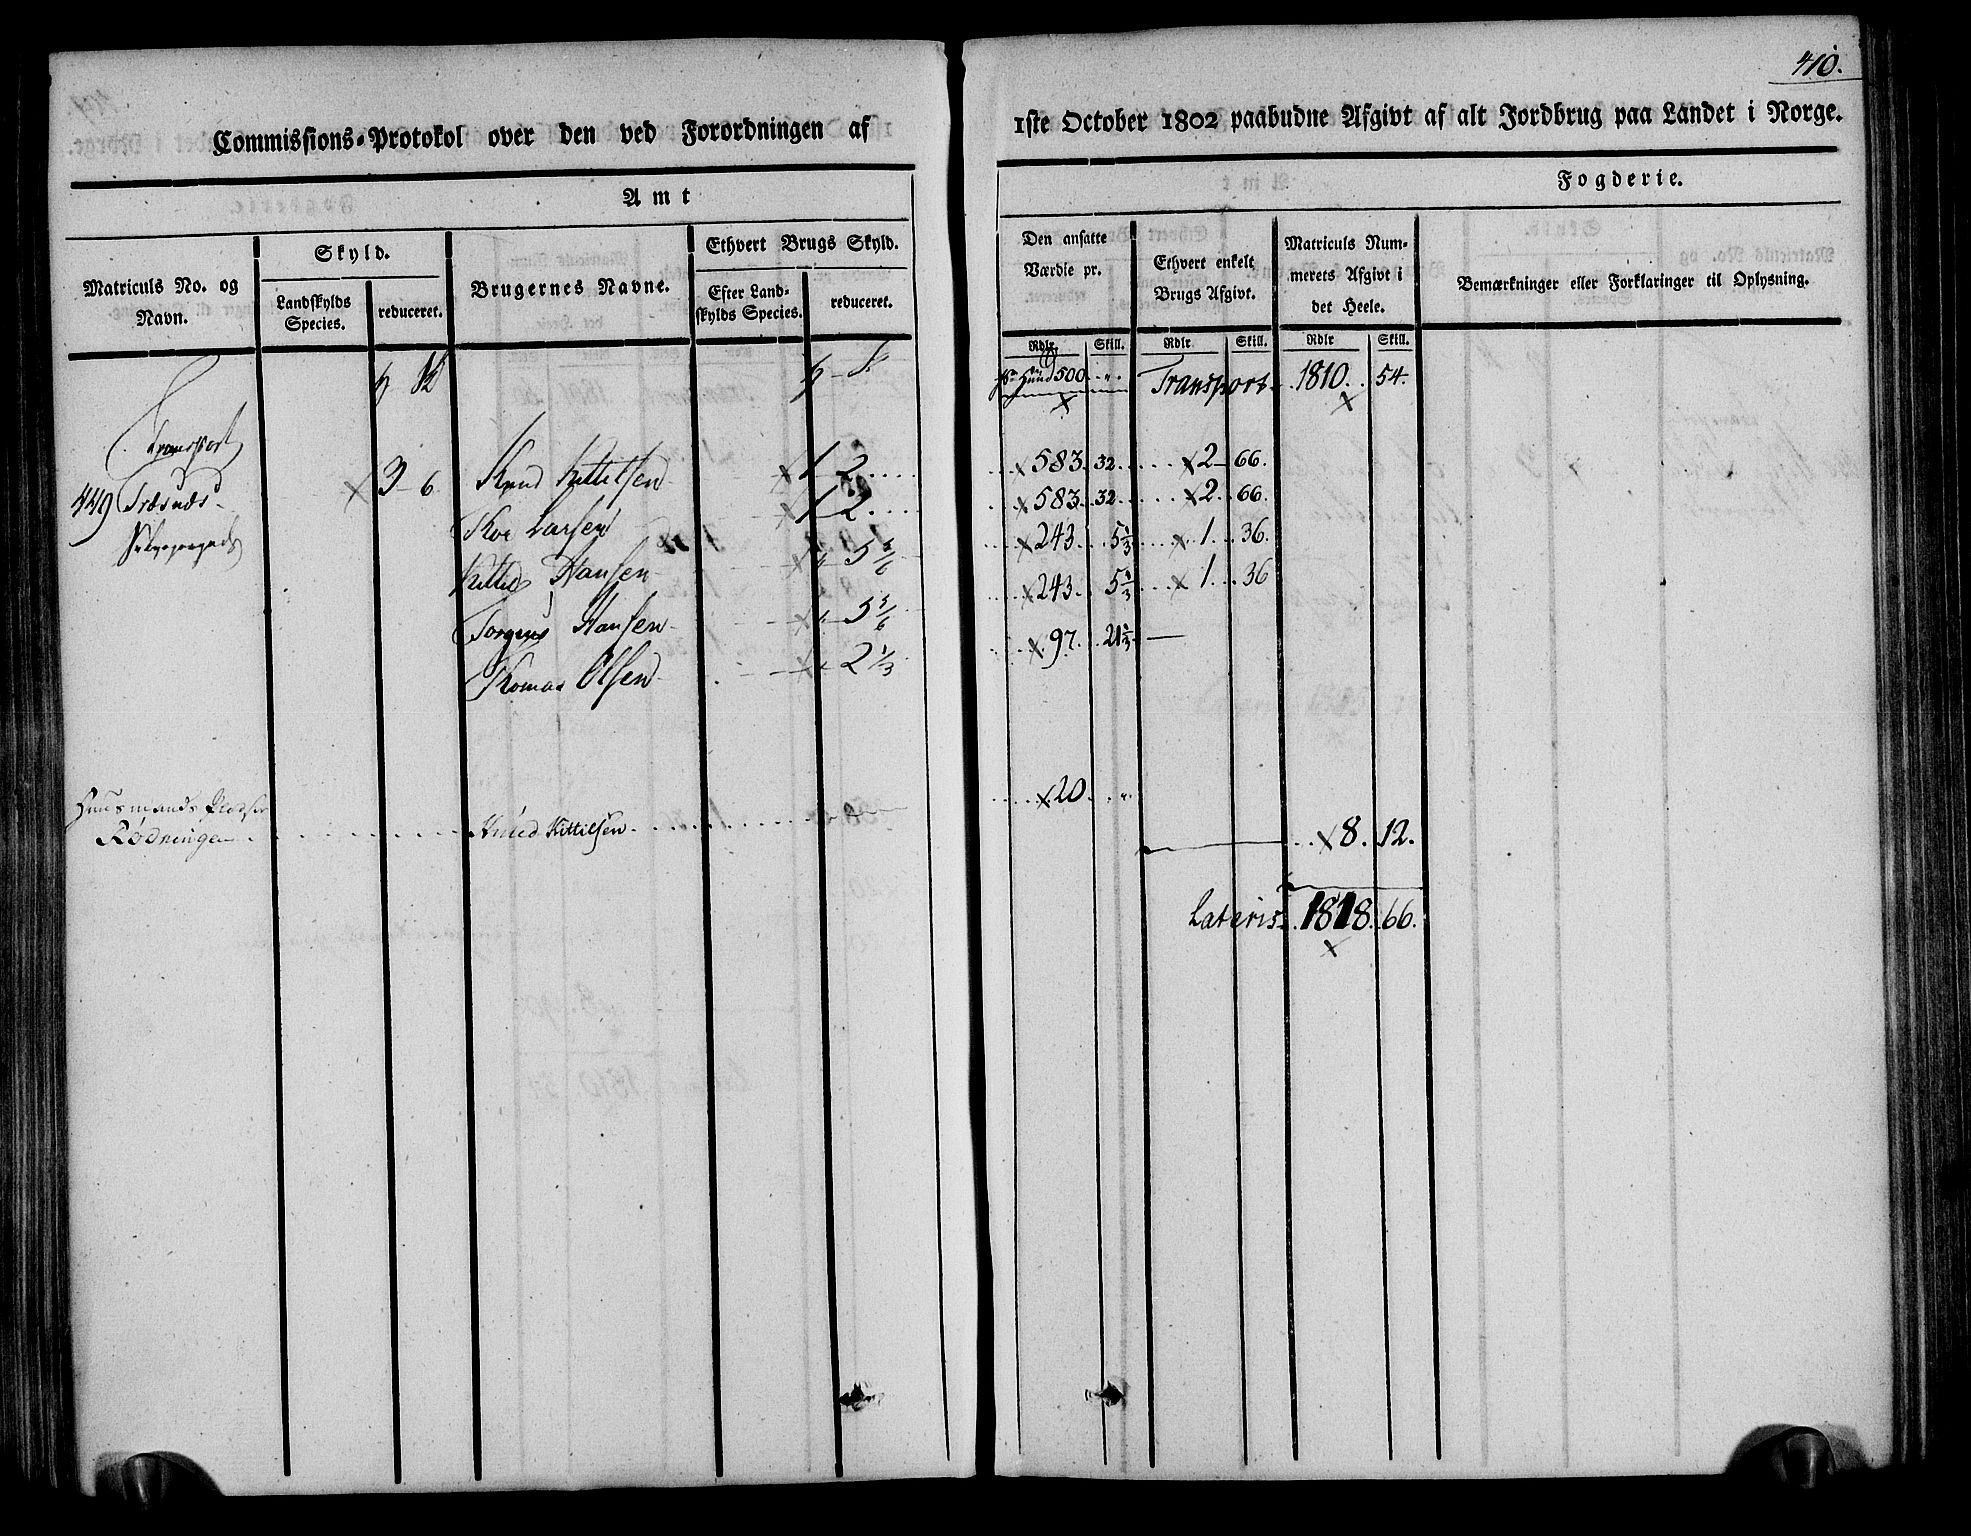 410.
Commissions-Protokol over den ved Forordningen af 1ste October 1802 paabudne Afgivt af alt Jordbrug paa Landet i Norge.
Amt Fogderie.
Matriculs No. og Navn.
Skyld.
Landskylds Species.
reduceret.
Brugernes Navne.
Ethvert Brugs Skyld.
Efter Landskylds Species.
reduceret.
Den ansatte Værdie pr.
Ethvert enkelt Brugs Afgivt.
Matriculs Nummerets Afgivt i det Heele.
Bemærkninger eller Forklaringer til Oplysning.
Rdlr. Skill. Rdlr Skill. Rdlr Skill.
Hund 500 " Transport 1810. 54.
Transport
449 3 6 Knud Kittilsen 1 2 583. 32 2 66.
Thor Larsen 1 2 583. 32 2 66.
Kittil Hansen " 5 5/6 243. 5 1/3 1. 36.
Torgens Hansen " 5 5/6 243. 5 1/3 1. 36
Thomas Olsen " 2 1/3 97. 21 1/3 —
Huusmands Pladser
Rödningen Knud Kittilsen. 20. "
8. 12.
Lateris 1818. 66.